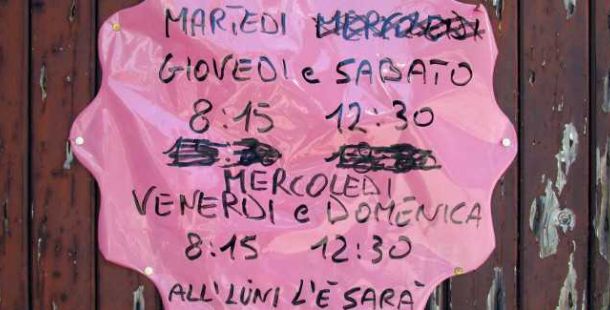 MARTEDI MERCOLEDI
GIOVEDI e SABATO
8:15 12:30
MERCOLEDI
VENERDI e DOMENICA
8:15 12:30
ALL'LUNI L'È SARÀ